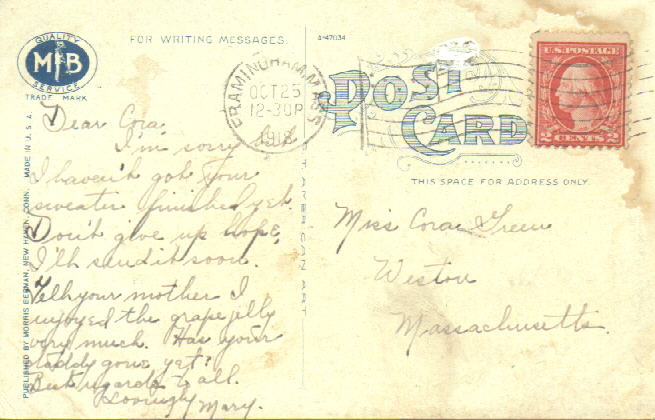 QUALITY
MB
SERVICE
TRADE MARK
FOR WRITING MESSAGES.
A-47034
FRAMINGHAM, MASS
OCT 25
12-30P
1918
POST
CARD
U.S. POSTAGE
2 CENTS 2
THIS SPACE FOR ADDRESS ONLY.
PUBLISHED BY MORRIS BERMAN, NEW HAVEN, CONN. MADE IN U.S.A.
Dear Cora
I'm sorry
I haven't got your
sweater finished yet.
Don't give up hope,
I'll send it soon.
Tell your mother I
enjoyed the grape jelly
very much. Has your
daddy gone yet?
Best regards to all.
Lovingly Mary.
AMERICAN ART
Miss Cora Green
Weston
Massachusetts.